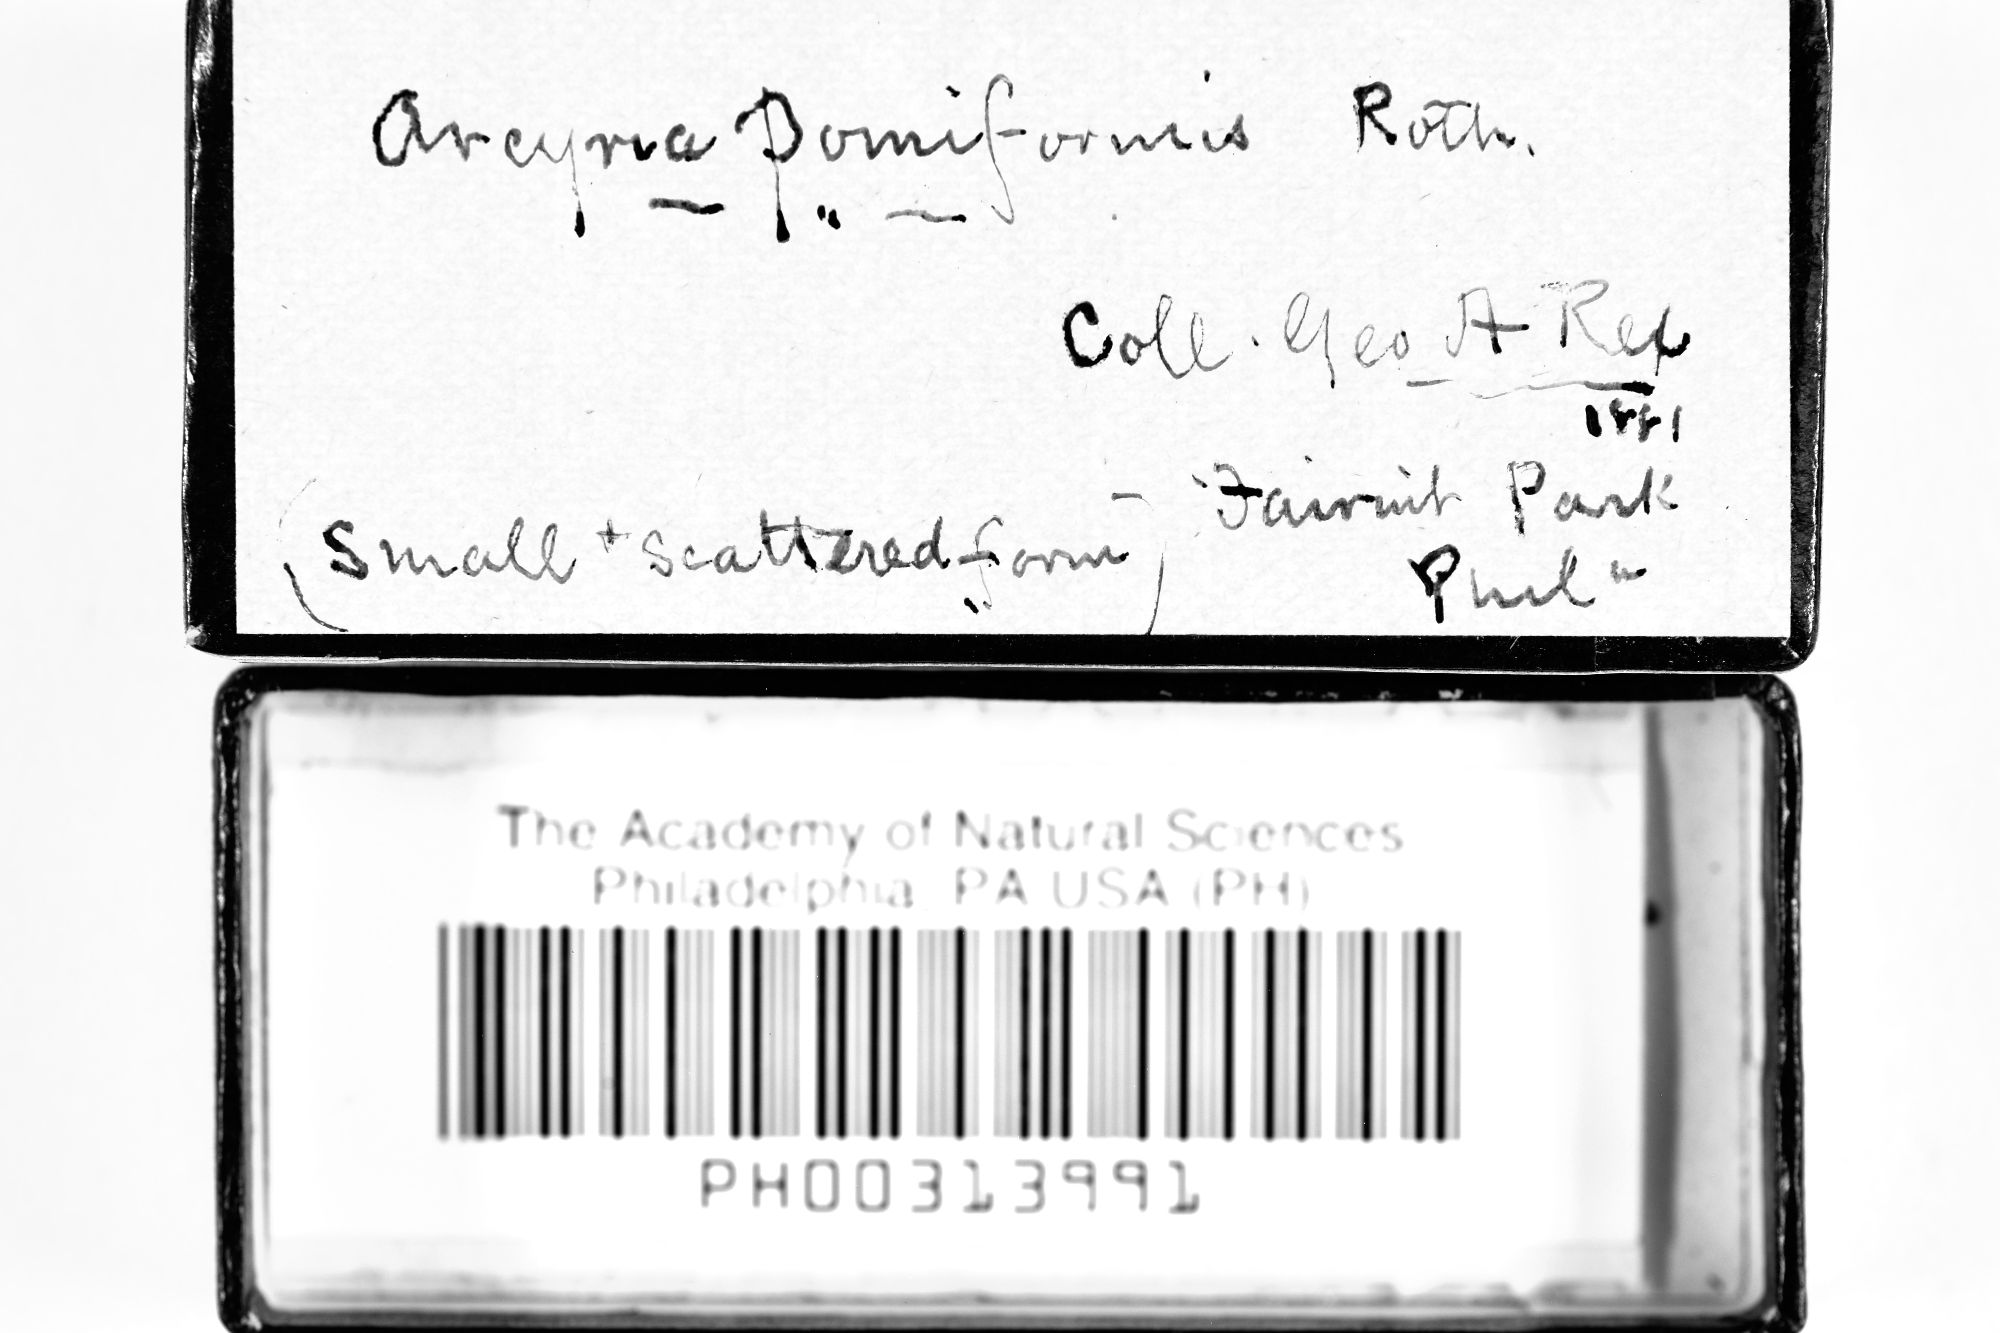 Arcyria Pomiformis Roth.
Coll. Geo A Rex
1881
Fairmt Park
(Small + scattered form)
Phil"
The Academy of Natural Sciences
Philadelphia, PA USA (PH)
PH00313991